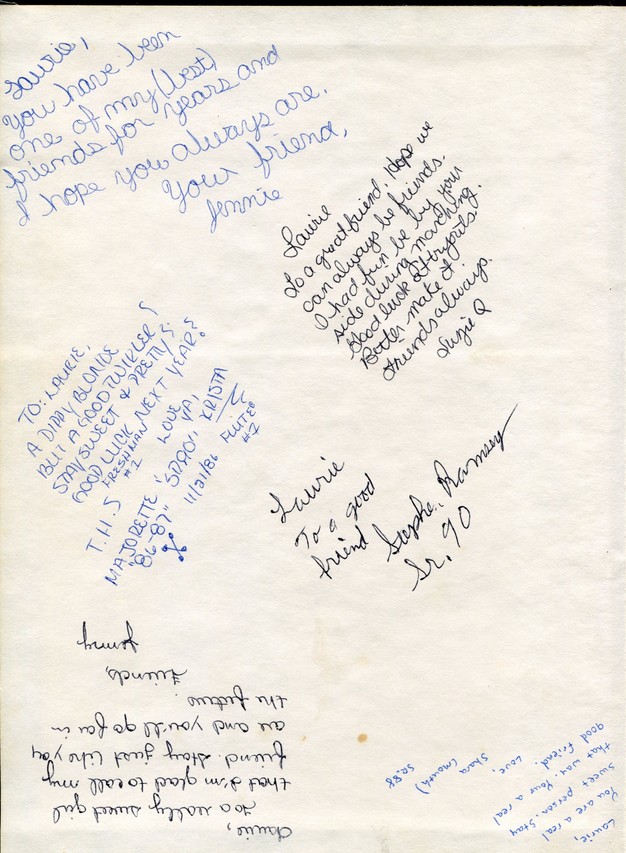 Laurie,
You have been
one of my (best)
friends for years and
I hope you always are.
Your friend,
Jennie
Laurie
To a great friend. Hope we
can always be friends.
I had fun be by your
side during marching.
Good luck at tryouts.
Better make it
Friends always.
Suzie Q
TO: LAURIE,
A DIPPY BLONDE
BUT A GOOD TWIRLER!
STAY SWEET & PRETTY &
GOOD LUCK NEXT YEAR!
FRESHMAN
#1
LOVE
YA,
KRISTA
T.H.S
MAJORETTE
"86-87"
11/21/86
FLUTE
#1
Laurie
To a good
friend
Ramsey
Sr. 90
Laurie,
To a really sweet girl
that I'm glad to call my
friend. Stay just like you
are and you'll go far in
the future.
Friends,
Jenny
Laurie,
You are a real
sweet person. Stay
that way. Your a real
good friend.
Love,
Shara (mouth)
SR88